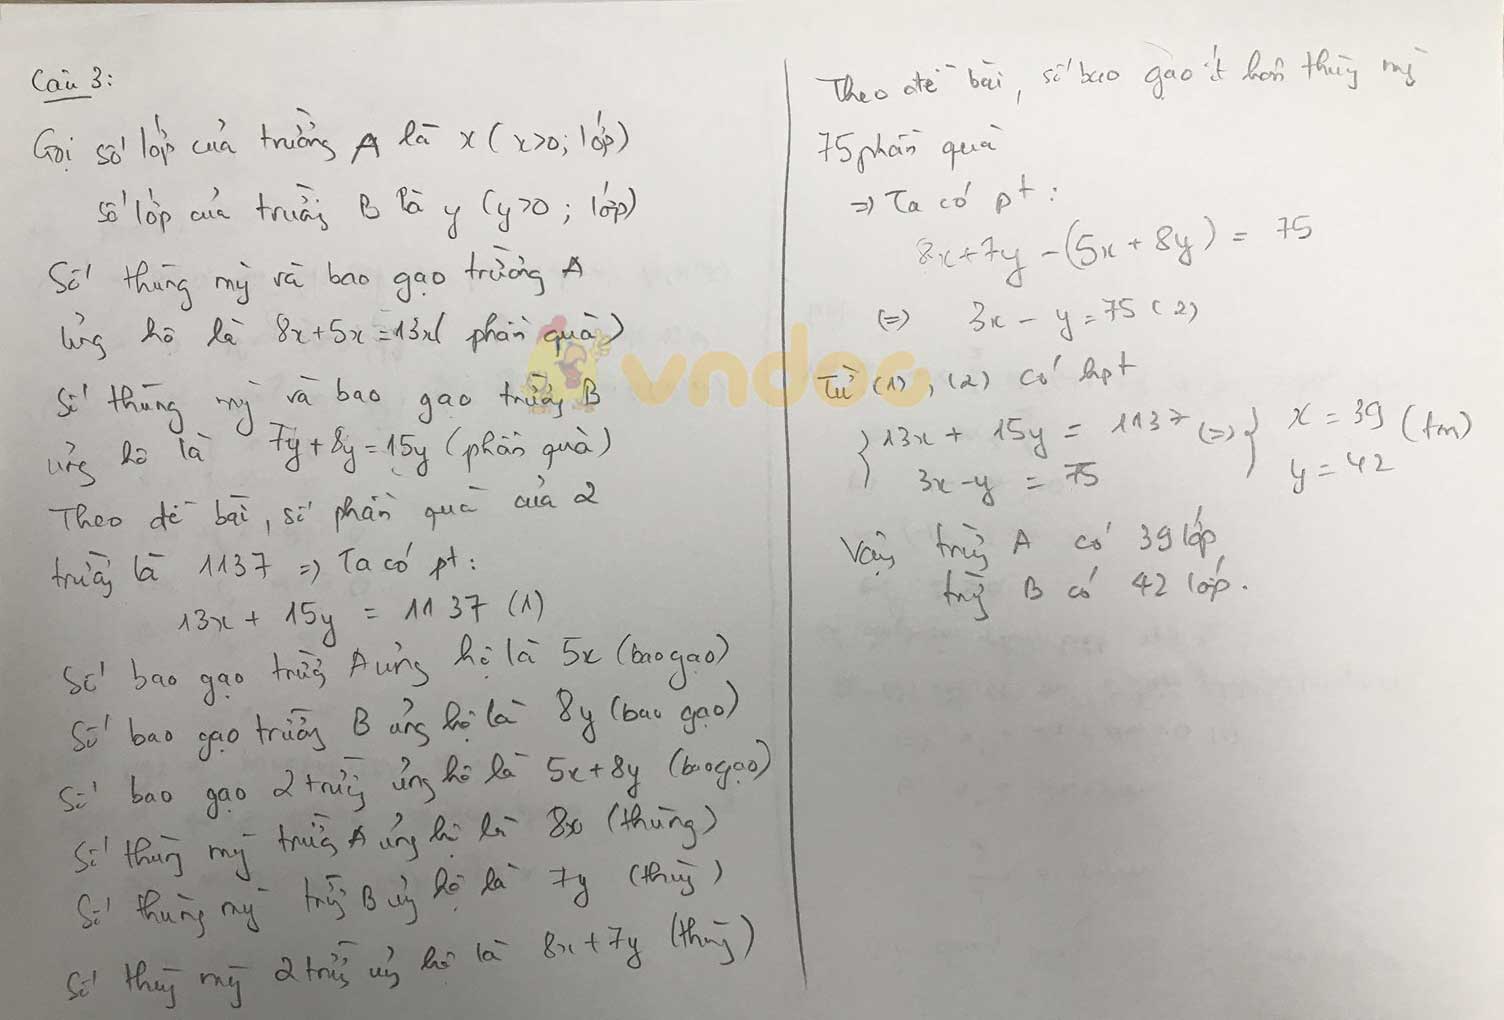 Câu 3:
Gọi số lớp của trường A là x (x>0; lớp)
số lớp của trường B là y (y>0; lớp)
Số thùng mỳ và bao gạo trường A
ủng hộ là 8x+5x=13x( phần quà)
Số thùng mỳ và bao gạo trường B
ủng hộ là 7y+8y=15y (phần quà)
Theo đề bài, số phần quà của 2
trường là 1137 => Ta có pt:
13x + 15y = 1137 (1)
Số bao gạo trường A ủng hộ là 5x (bao gạo)
Số bao gạo trường B ủng hộ là 8y (bao gạo)
Số bao gạo 2 trường ủng hộ là 5x+8y (bao gạo)
Số thùng mỳ trường A ủng hộ là 8x (thùng)
Số thùng mỳ trường B ủng hộ là 7y (thùng)
Số thùng mỳ 2 trường ủng hộ là 8x+7y (thùng)
Theo đề bài, số bao gạo ít hơn thùng mỳ
75 phần quà
=> Ta có pt:
8x+7y-(5x+8y) = 75
(=) 3x - y = 75 (2)
Từ (1), (2) có hpt
{13x + 15y = 1137 (=) { x = 39 (tm)
3x-y = 75 y = 42
Vậy trường A có 39 lớp
trường B có 42 lớp.
vndoc